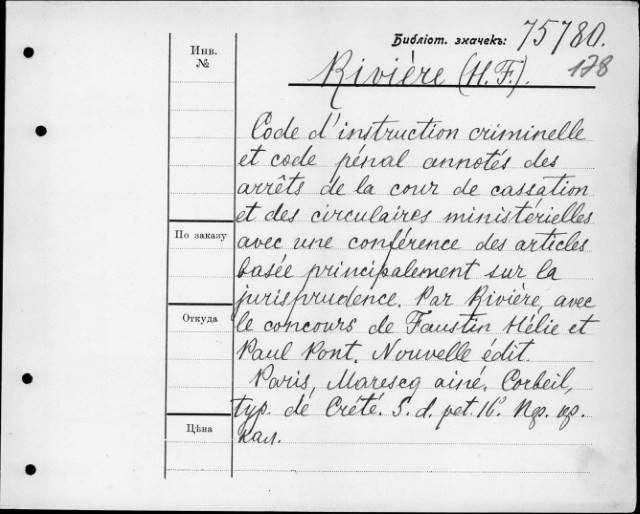 Библіот. значекъ: 75780.
178
Инв.
№
Rivière (H. F.).
Code d'instruction criminelle
et code pénal annotés des
arrêts de la cour de cassation
et des circulaires ministérielles
По заказу
avec une conférence des articles
basée principalement sur la
jurisprudence. Par Rivière, avec
Откуда
le concours de Faustin Hélie et
Paul Pont. Nouvelle édit.
Paris, Marescq ainé. Corbeil,
typ. de Crété. S. d. pet. 16°.
Цѣна
кал.